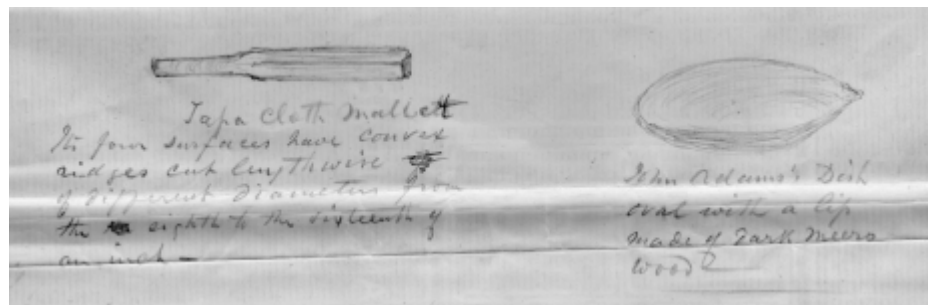 Tapa Cloth Mallett
Its four surfaces have convex
ridges cut lengthwise
of different Diameters from
the eighth to the sixteenth of
an inch —
John Adams's Dish
oval with a lip
made of Dark Meero
Wood